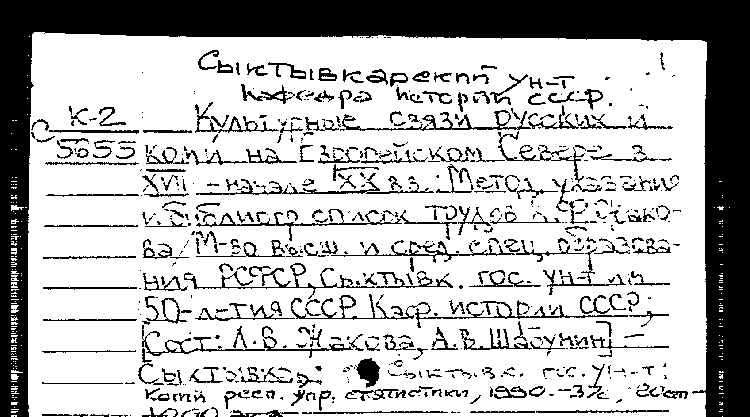 1
Сыктывкарский ун-т.
Кафедра истории СССР.
К-2 Культурные связи русских и
С 5655 коми на Европейском Севере в
XVII - начале XX вв.: Метод. указание
и библиогр. список трудов К.Ф. Жако-
ва/М-во высш. и сред. спец. образова-
ния РСФСР, Сыктывк. гос. ун-т им
50-летия СССР. Каф. истории СССР;
[Сост: Л.В. Жакова, А.В. Шабунин] -
Сыктывкар: Сыктывк. гос. ун-т:
Коми респ. упр. статистики, 1990. - 20см -
1000 экз